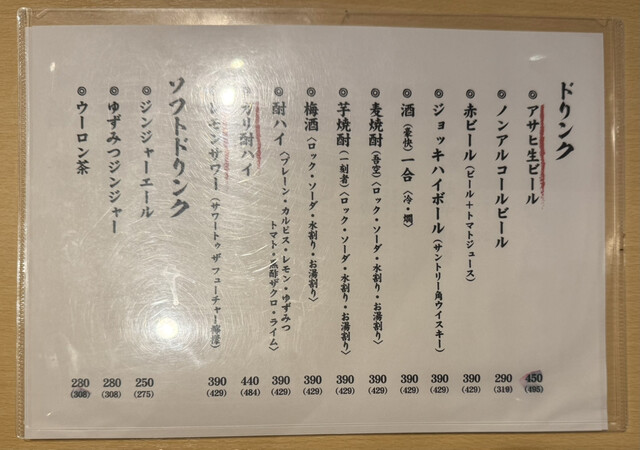 ドリンク
◎アサヒ生ビール 450 (495)
◎ノンアルコールビール 290 (319)
◎赤ビール(ビール+トマトジュース) 390 (429)
◎ジョッキハイボール(サントリー角ウイスキー) 390 (429)
◎酒(豪快)一合(冷・燗) 390 (429)
◎麦焼酎(吾空)(ロック・ソーダ・水割り・お湯割り) 390 (429)
◎芋焼酎(一刻者)(ロック・ソーダ・水割り・お湯割り) 390 (429)
◎梅酒(ロック・ソーダ・水割り・お湯割り) 390 (429)
◎酎ハイ(プレーン・カルピス・レモン・ゆずみつ
トマト・黒酢ザクロ・ライム) 390 (429)
ガリ酎ハイ 440 (484)
レモンサワー(サワートゥザフューチャー檸檬) 390 (429)
ソフトドリンク
◎ジンジャーエール 250 (275)
◎ゆずみつジンジャー 280 (308)
◎ウーロン茶 280 (308)